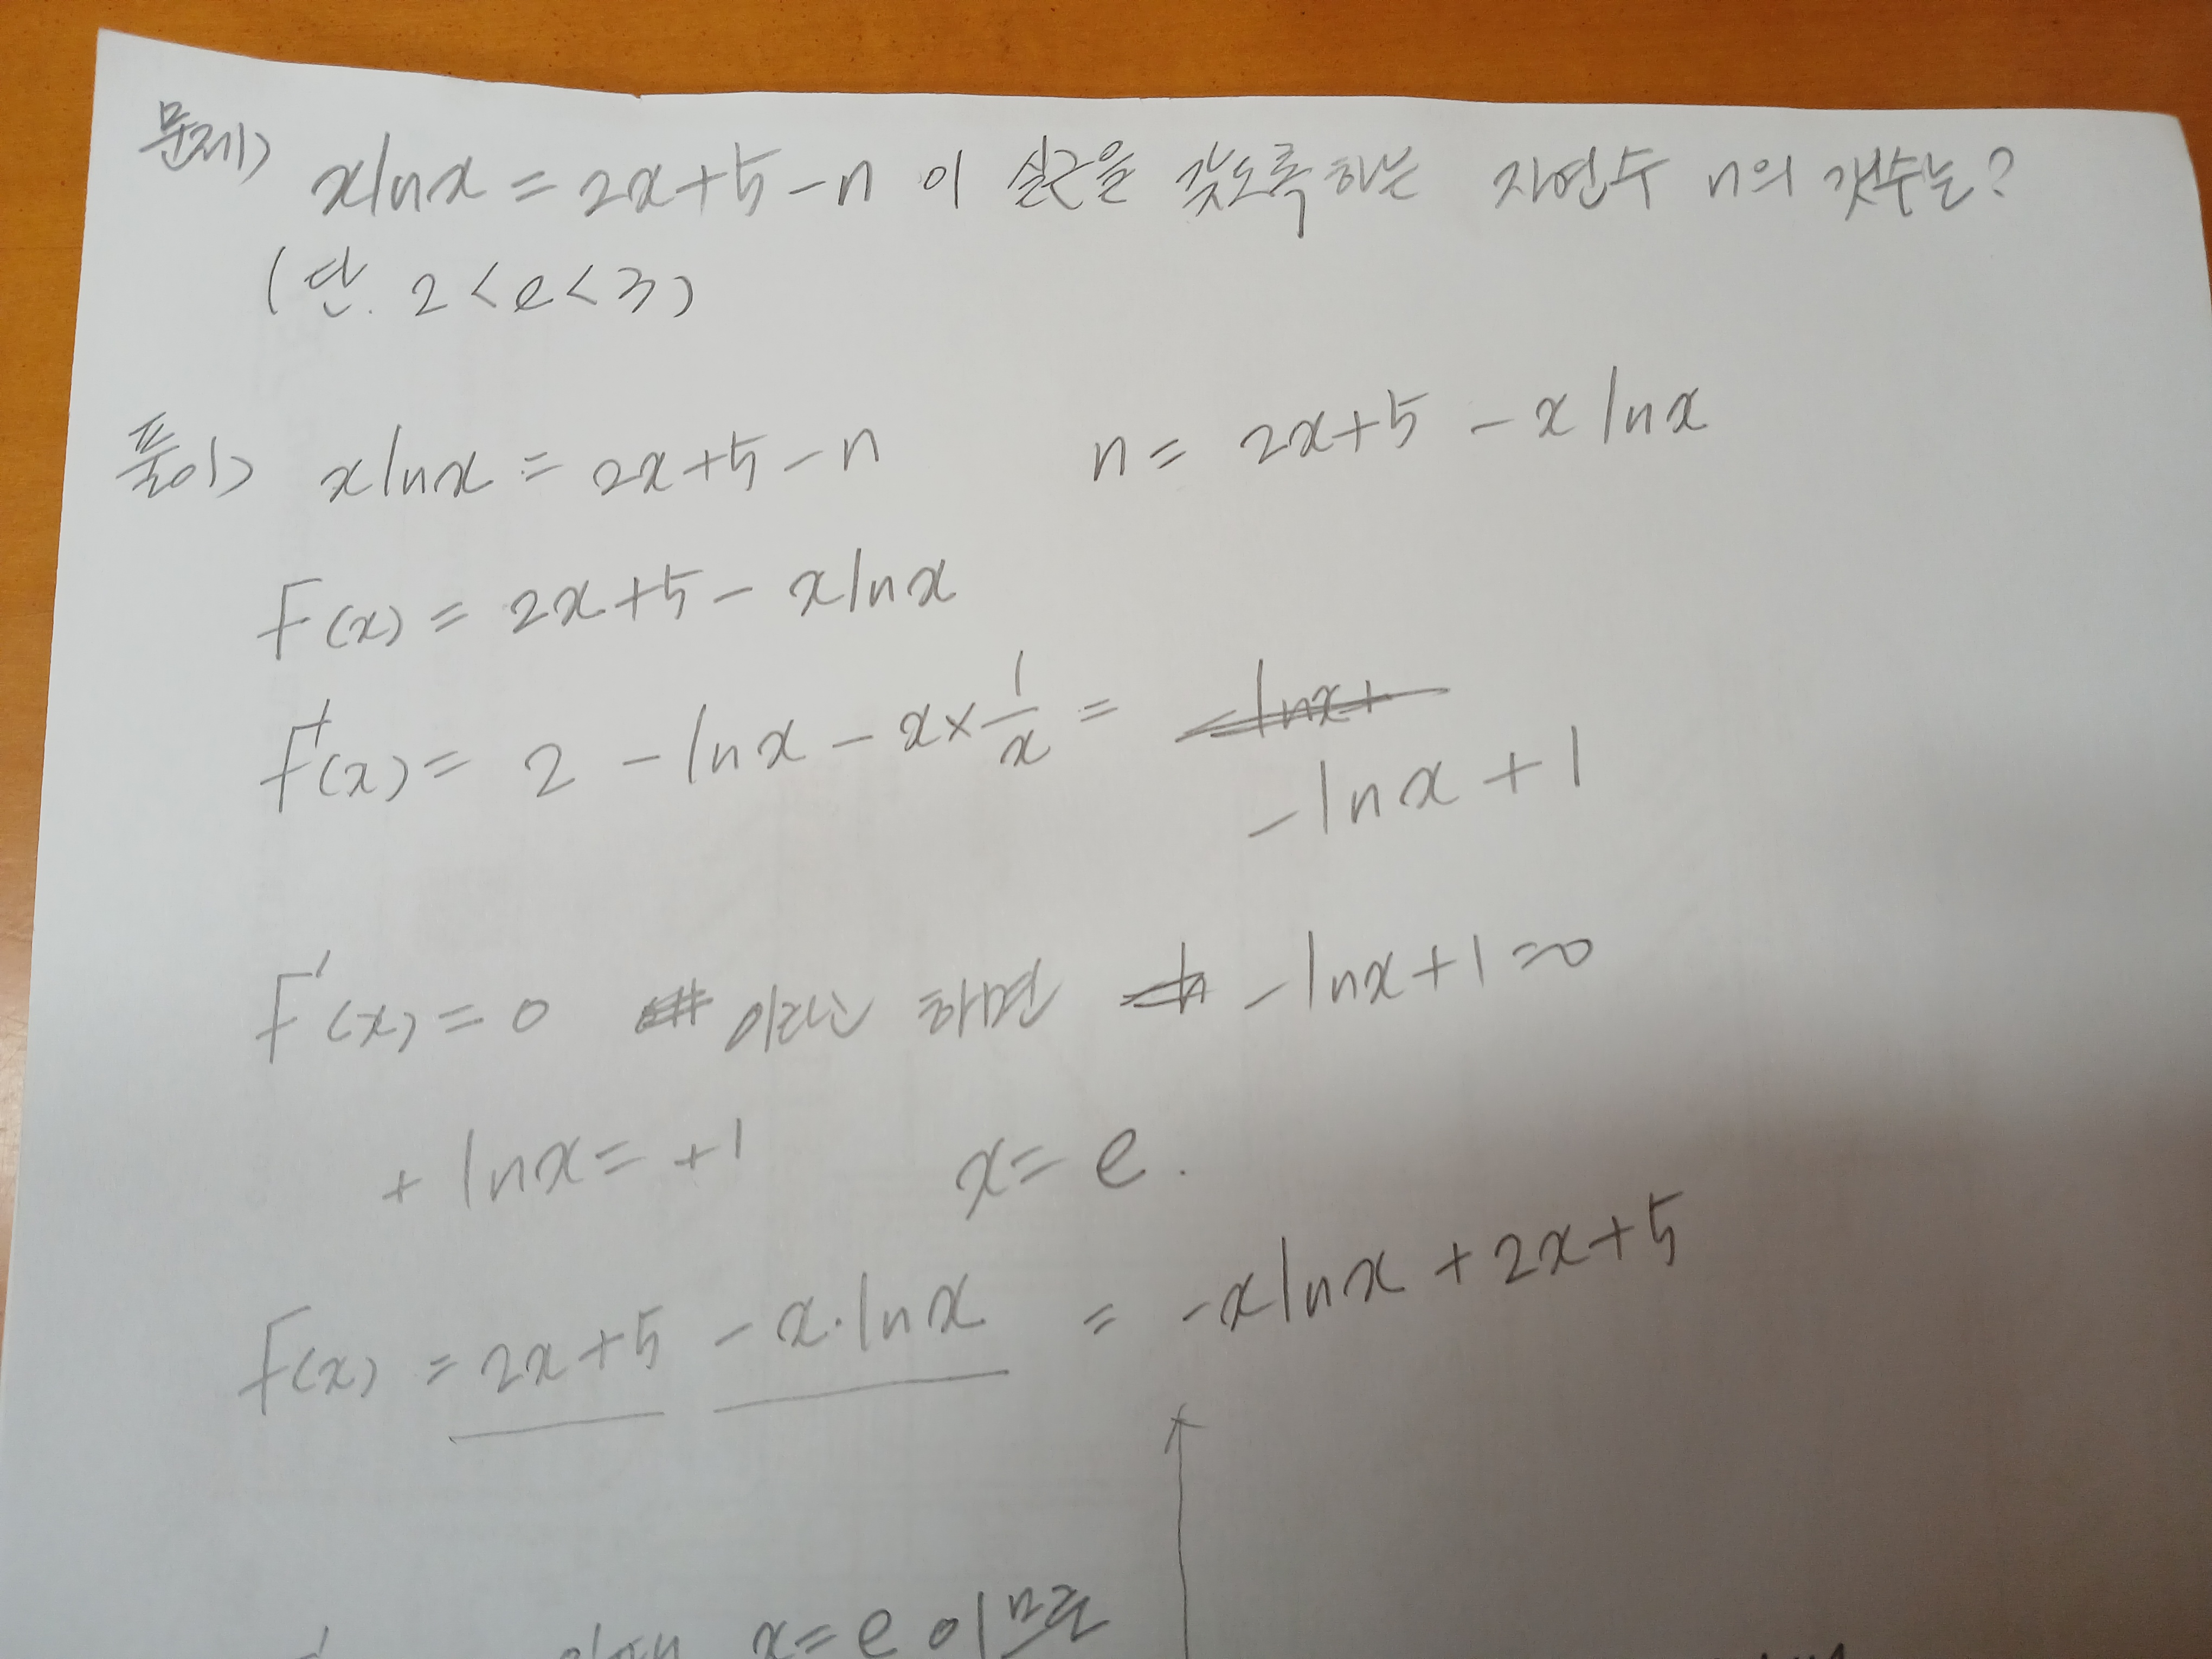 문제> xlnx = 2x+5-n 이 실근을 갖도록하는 자연수 n의 갯수는?
(단. 2<e<3)
풀이> xlnx = 2x+5-n n = 2x+5 - x lnx
F(x) = 2x+5 - xlnx
F'(x) = 2 - lnx - x×1/x =
-lnx+1
F'(x) = 0 이라 하면 -lnx+1=0
+lnx = +1 x = e.
F(x) = 2x+5 - x·lnx = -xlnx+2x+5
x = e 이므로